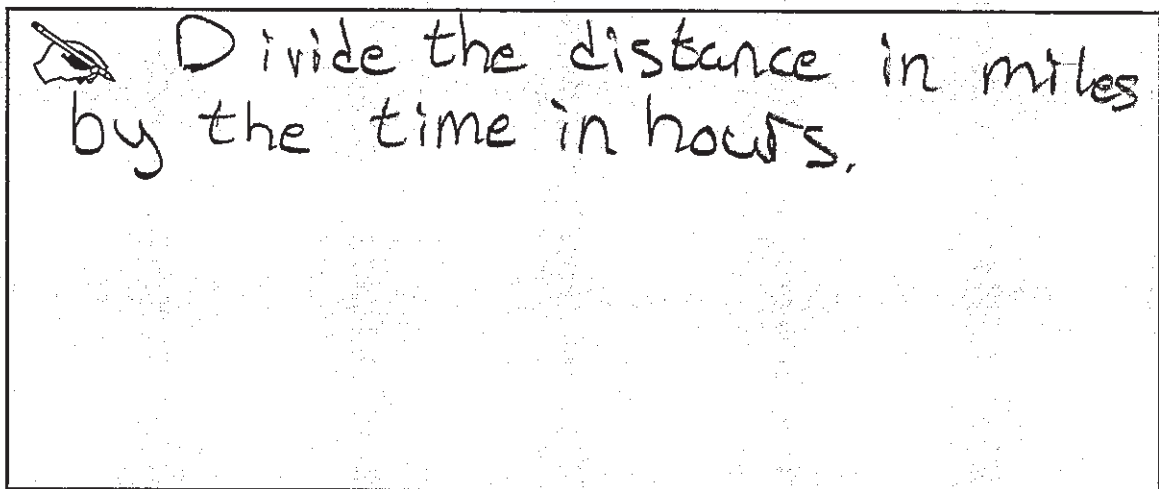 Divide the distance in miles
by the time in hours.